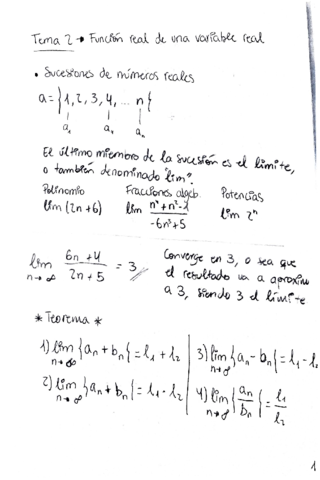 Tema 2 → Función real de una variable real
• Sucesiones de números reales
a = {1, 2, 3, 4, ... n{
a₁ aₙ
El último miembro de la sucesión es el límite,
o también denominado "lim".
Polinomio Fracciones algeb. Potencias
lim (2n+6) lim (n⁴+n²-2)/(-6n³+5) lim 2ⁿ
lim n→∞ (6n+4)/(2n+5) = 3 Converge en 3, o sea que
el resultado va a aproxim
a 3, siendo 3 el límite
* Teorema *
1) lim n→∞ {aₙ + bₙ{ = l₁ + l₂ 3) lim n→∞ {aₙ - bₙ{ = l₁ - l₂
2) lim n→∞ {aₙ + bₙ{ = l₁ · l₂ 4) lim n→∞ {aₙ/bₙ{ = l₁/l₂
1